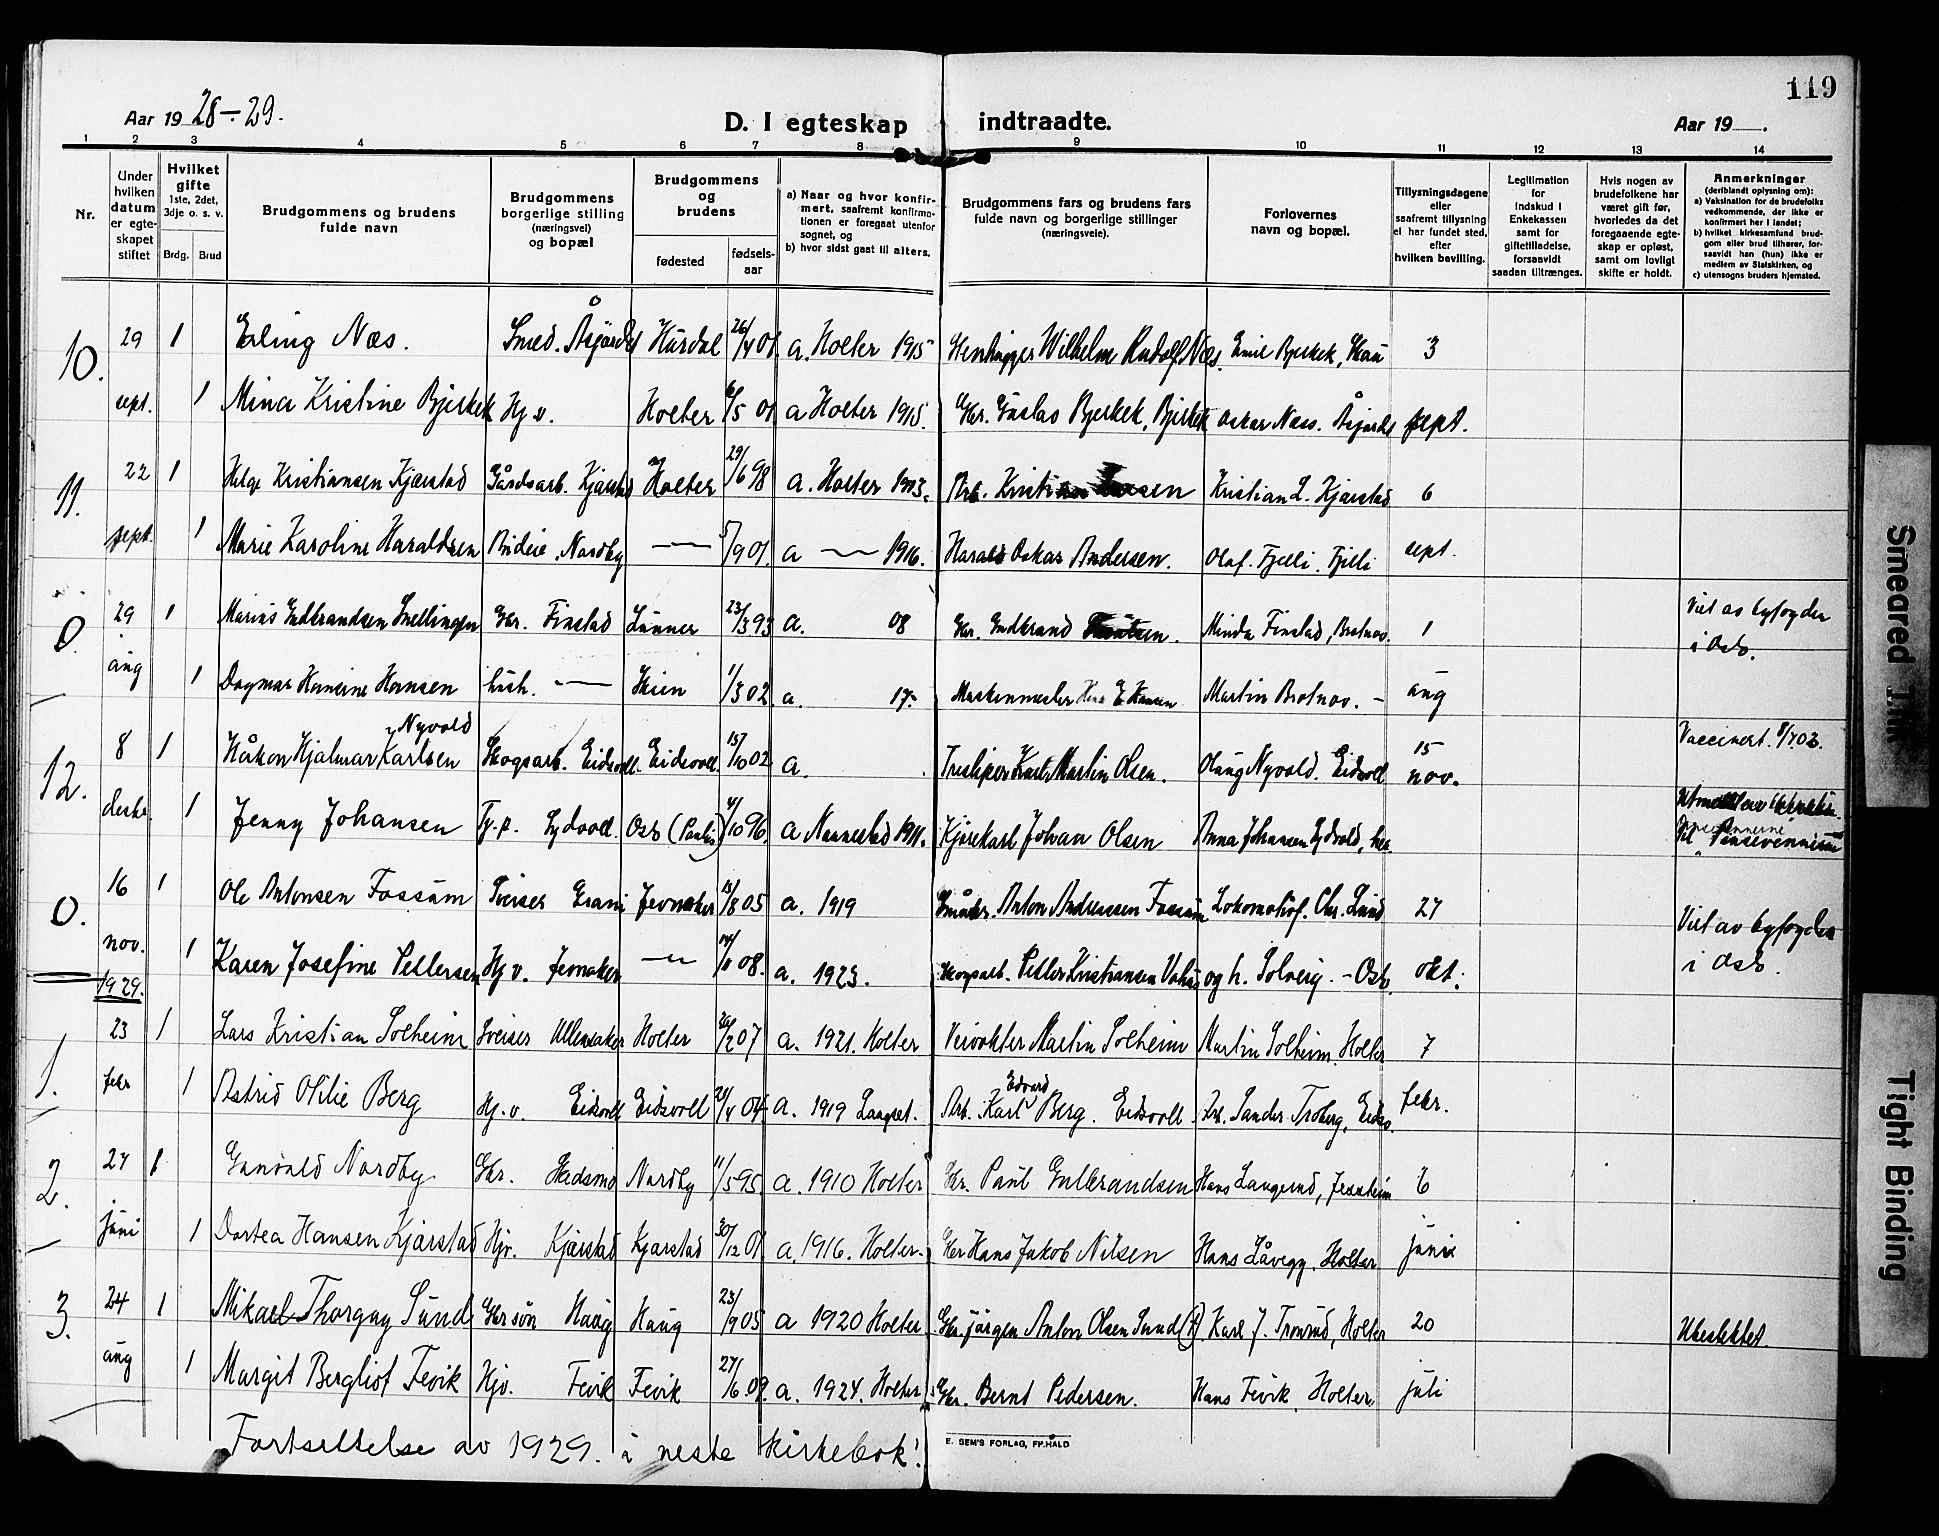 119
Aar 19 28-29.
D. I egteskap indtraadte.
Aar 19 .
1 2 3 4 5 6 7 8 9 10 11 12 13 14
Nr.
Under hvilken datum er egteskapet stiftet
Hvilket gifte 1ste, 2det, 3dje o. s. v.
Brdg. Brud
Brudgommens og brudens fulde navn
Brudgommens borgerlige stilling (næringsvei) og bopæl
Brudgommens og brudens
fødested
fødsels-aar
a) Naar og hvor konfirmert, saafremt konfirmationen er foregaat utenfor sognet, og
b) hvor sidst gaat til alters.
Brudgommens fars og brudens fars fulde navn og borgerlige stillinger (næringsveie).
Forlovernes navn og bopæl.
Tillysningsdagene eller saafremt tillysning ei har fundet sted, efter hvilken bevilling.
Legitimation for indskud i Enkekassen samt for giftetilladelse, forsaavidt saadan tiltrænges.
Hvis nogen av brudefolkene har været gift før, hvorledes da det foregaaende egteskap er opløst, samt om lovligt skifte er holdt.
Anmerkninger (deriblandt oplysning om):
a) Vaksination for de brudefolks vedkommende, der ikke er konfirmert her i landet;
b) hvilket kirkesamfund brudgom eller brud tilhører, forsaavidt han (hun) ikke er medlem av Statskirken, og
c) utensogns bruders hjemsted.
10. 29 1 Erling Næs. Smed. Hurdal 26/4 01 a. Holter 1915 Wilhelm Rudolf Næs. Emil Bjerkek, 3
sept. 1 Mina Kristine Bjerkek Hj v. Holter 6/5 01 a Holter 1915. Gbr. Gustav Bjerkek, Bjerkek Oskar Næss. sept.
11. 22 1 Helge Kristiansen Kjærstad Gårdsarb. Kjærstad Holter 29/6 98 a. Holter 1913. Arb. Kristian Kristian L. Kjærstad 6
sept. 1 Marie Karoline Haraldsen Budeie. Nordby — 5/9 01. a — 1916. Harald Oskar Andersen. Olaf. Fjelli. Fjelli sept.
0. 29 1 Marius Gudbrandsen Snellingen Gbr. Finstad Lunner 23/3 93 a. 08 Gbr. Gudbrand Minda Finstad, Brotnov. 1 Viet av byfogden
aug 1 Dagmar Hansen hush. — Skien 1/3 02 a. 17. Maskinmester Martin Brotnov. - aug i Oslo.
12. 8 1 Håkon Hjalmar Karlsen Nyvold Skogsarb. Eidsvoll. Eidsvoll. 15/10 02 a. Karl Martin Olsen. Olaug Nyvold. Eidsvoll 15 nov. Vaccinert. 8/7 03.
desbr. 1 Jenny Johansen Sydvoll. Oslo 4/10 96. a Nannestad 1911. Kjørekarl Johan Olsen Anna Johansen Sydvold,
0. 16 1 Ole Antonsen Fossum Sveiser Gran Jevnaker 13/8 05 a. 1919 Småbr. Anton Andreassen Fossum Lokomotivf. Chr. Lund 27 Viet av byfogden
nov. 1 Karen Josefine Pettersen Hj v. Jevnaker — 08. a. 1923. Skogsarb. Petter Kristiansen og h. Solveig. - Oslo. okt. i Oslo.
1929.
1. 23 1 Lars Kristian Solheim Sveiser Ullensaker Holter 26/2 07 a. 1921. Holter Veivokter Martin Solheim Martin Solheim Holter 7
febr 1 Astrid Otilie Berg Hj. v. Eidsvoll Eidsvoll 04 a. 1919 Langset. Arb. Karl Edvard Berg. Eidsvoll. Arb. Sander Troberg, Eidsv. febr.
2. 27 1 Gunvald Nordby Gbr. Skedsmo Nordby 11/5 95. a. 1910 Holter Gbr. Paul Gulbrandsen Hans Langerud, Jessheim 6
juni 1 Dortea Hansen Kjærstad Hjv. Kjærstad Kjærstad 30/12 01. a. 1916. Holter. Gbr Hans Jakob Nilsen Hans Låvegg, Holter juni
3. 24 1 Mikael Thorgny Sund Gbr søn Haug Haug 23/9 05 a 1920 Holter Gbr. Jørgen Anton Olsen Sund Karl J. Tronrud, Holter 20 Ubeslektet.
aug 1 Margit Bergliot Fevik Hjv. Fevik Fevik 27/6. 09. a. 1924. Holter Gbr. Bernt Pedersen. Hans Fevik, Holter juli
Fortsettelse av 1929. i neste kirkebok!
E. SEM'S FORLAG, FR.HALD
Smeared Ink
Tight Binding